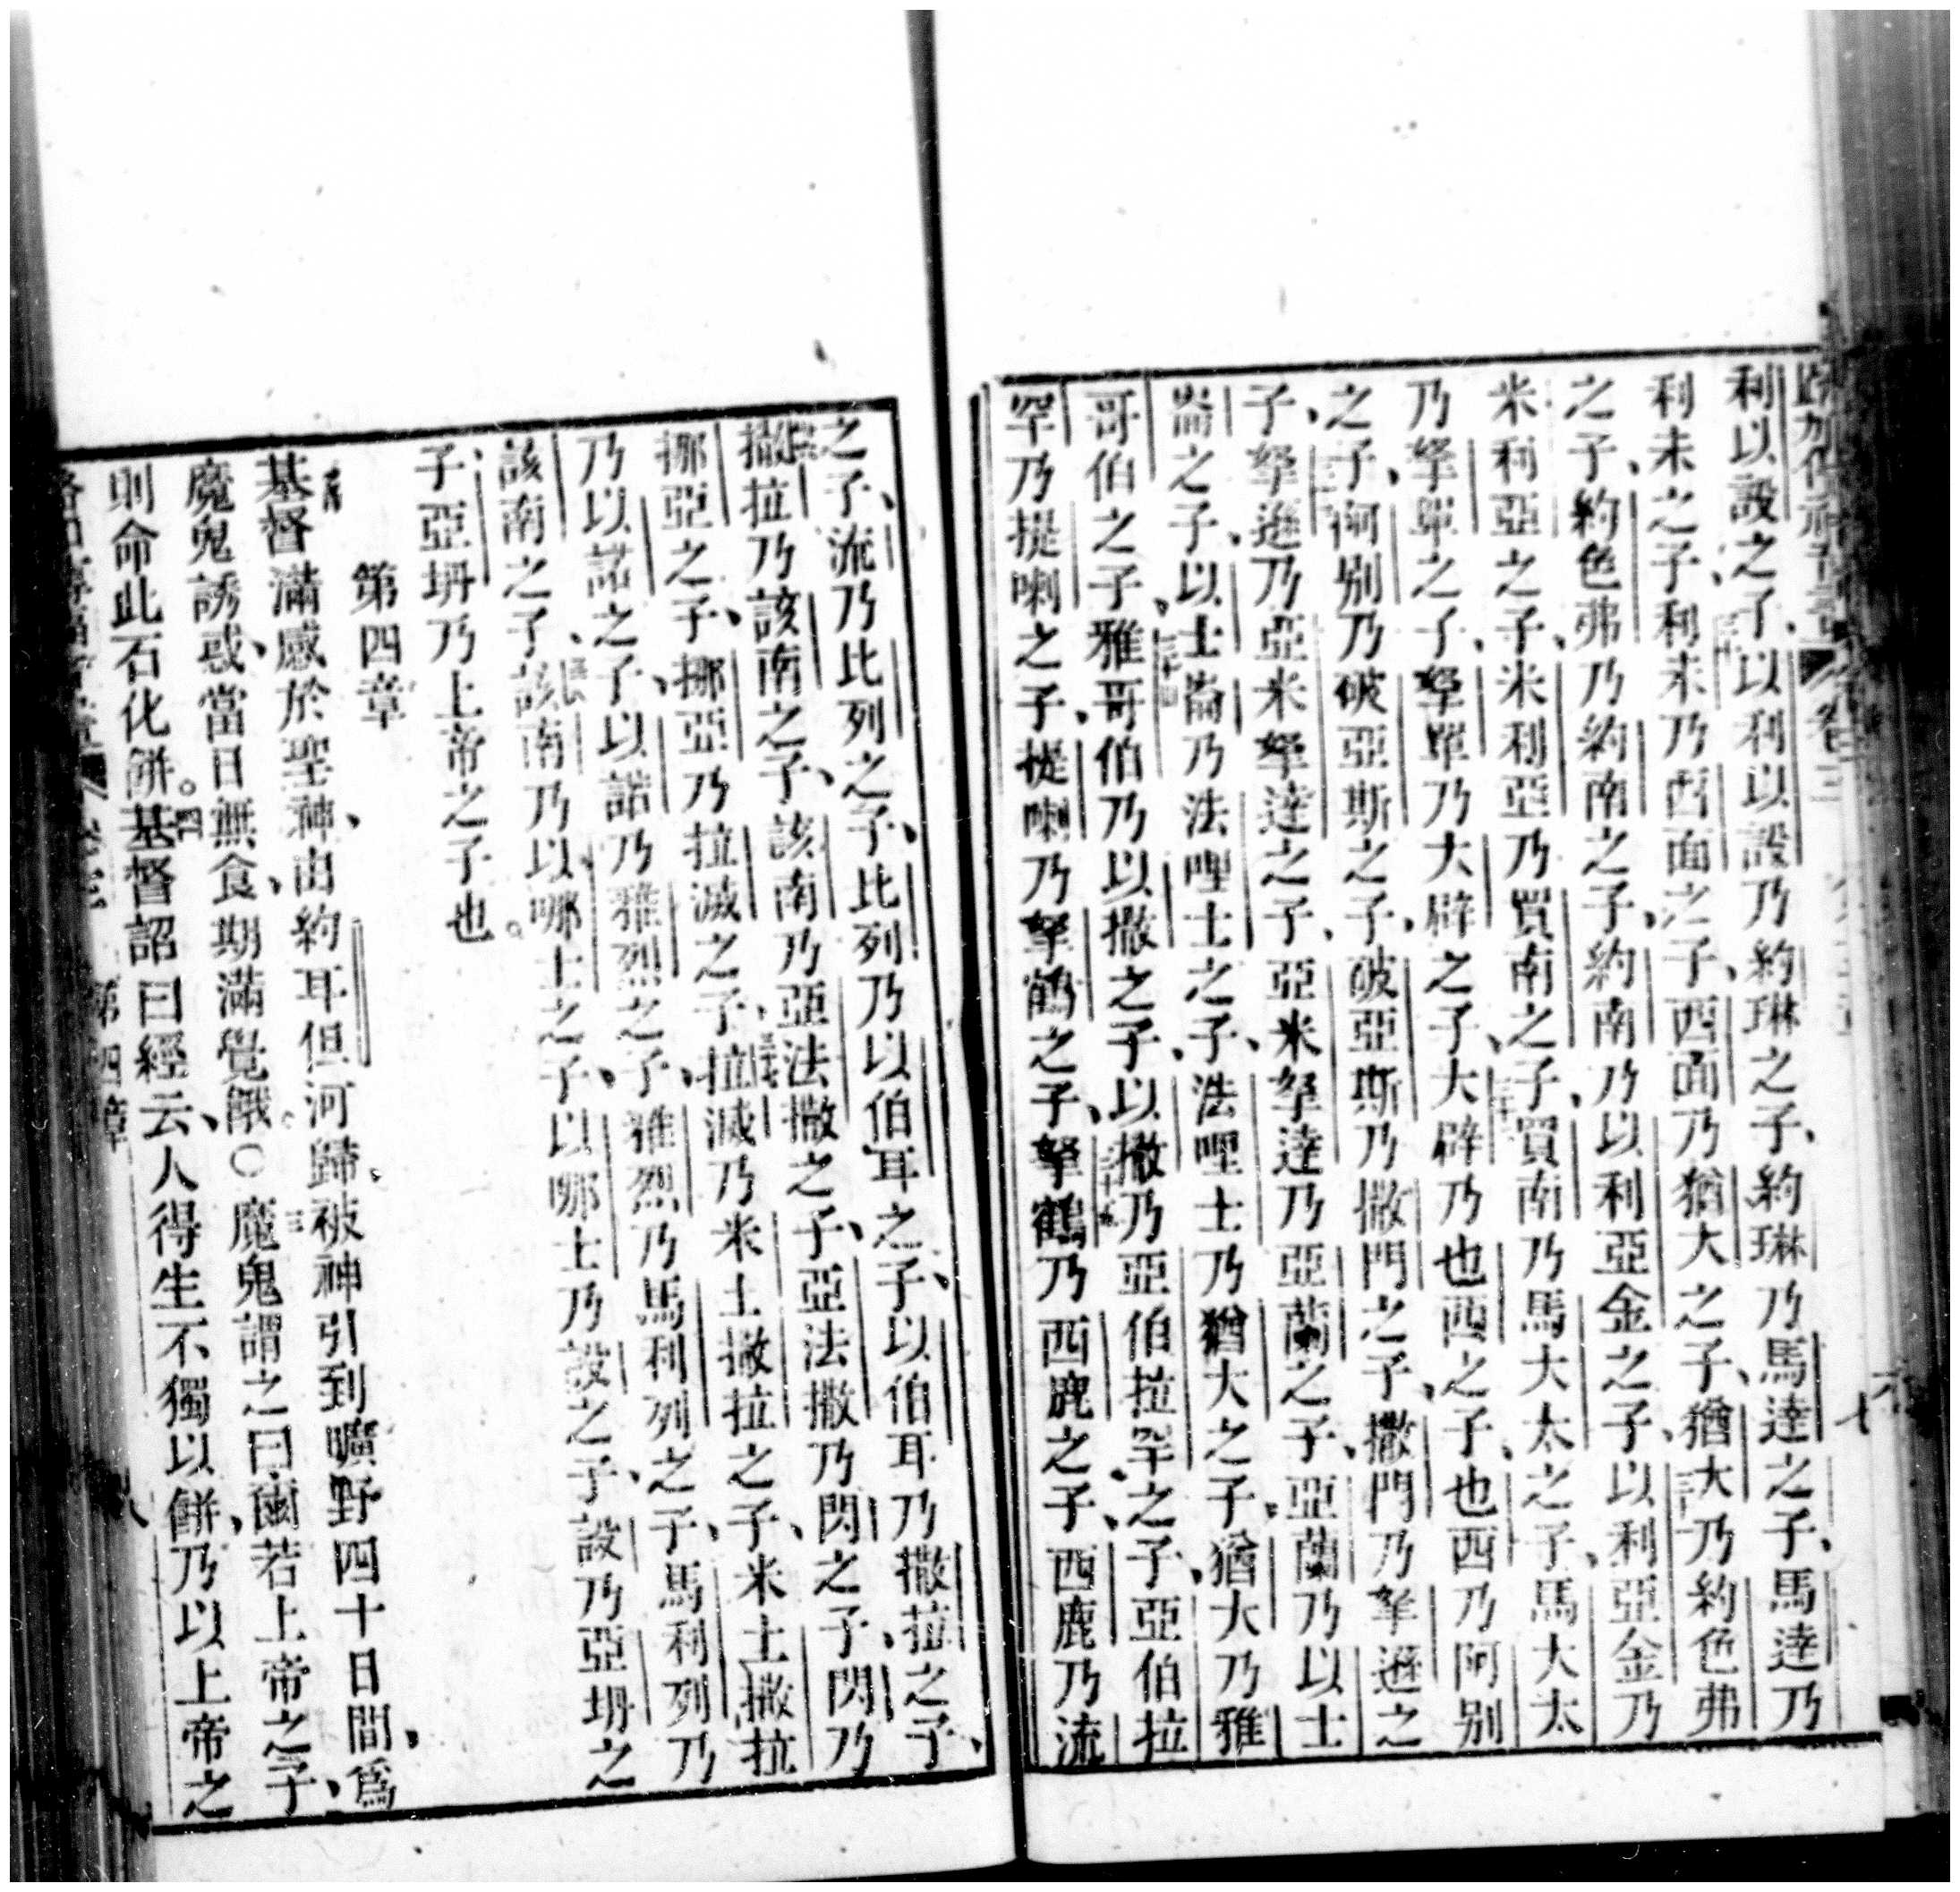 利以設之子、以利以設乃約琳之子、約琳乃馬達之子、馬達乃
利未之子、利未乃西面之子、西面乃猶大之子、猶大乃約色弗
之子、約色弗乃約南之子、約南乃以利亞金之子、以利亞金乃
米利亞之子、米利亞乃買南之子、買南乃馬大太之子、馬大太
乃拏單之子、拏單乃大辟之子、大辟乃也西之子、也西乃阿別
之子、阿別乃破亞斯之子、破亞斯乃撒門之子、撒門乃拏遜之
子、拏遜乃亞米拏達之子、亞米拏達乃亞蘭之子、亞蘭乃以士
崙之子、以士崙乃法哩士之子、法哩士乃猶大之子、猶大乃雅
哥伯之子、雅哥伯乃以撒之子、以撒乃亞伯拉罕之子、亞伯拉
罕乃提喇之子、提喇乃拏鶴之子、拏鶴乃西鹿之子、西鹿乃流
之子、流乃比列之子、比列乃以伯耳之子、以伯耳乃撒拉之子、
撒拉乃該南之子、該南乃亞法撒之子、亞法撒乃閃之子、閃乃
挪亞之子、挪亞乃拉滅之子、拉滅乃米土撒拉之子、米土撒拉
乃以諾之子、以諾乃雅烈之子、雅烈乃馬利列之子、馬利列乃
該南之子、該南乃以哪士之子、以哪士乃設之子、設乃亞坍之
子、亞坍乃上帝之子也。
第四章
基督滿感於聖神、由約耳但河歸、被神引到曠野四十日間、爲
魔鬼誘惑、當日無食、期滿覺餓。○三魔鬼謂之曰爾若上帝之子、
則命此石化餅。四基督詔曰經云、人得生不獨以餅、乃以上帝之
第四章